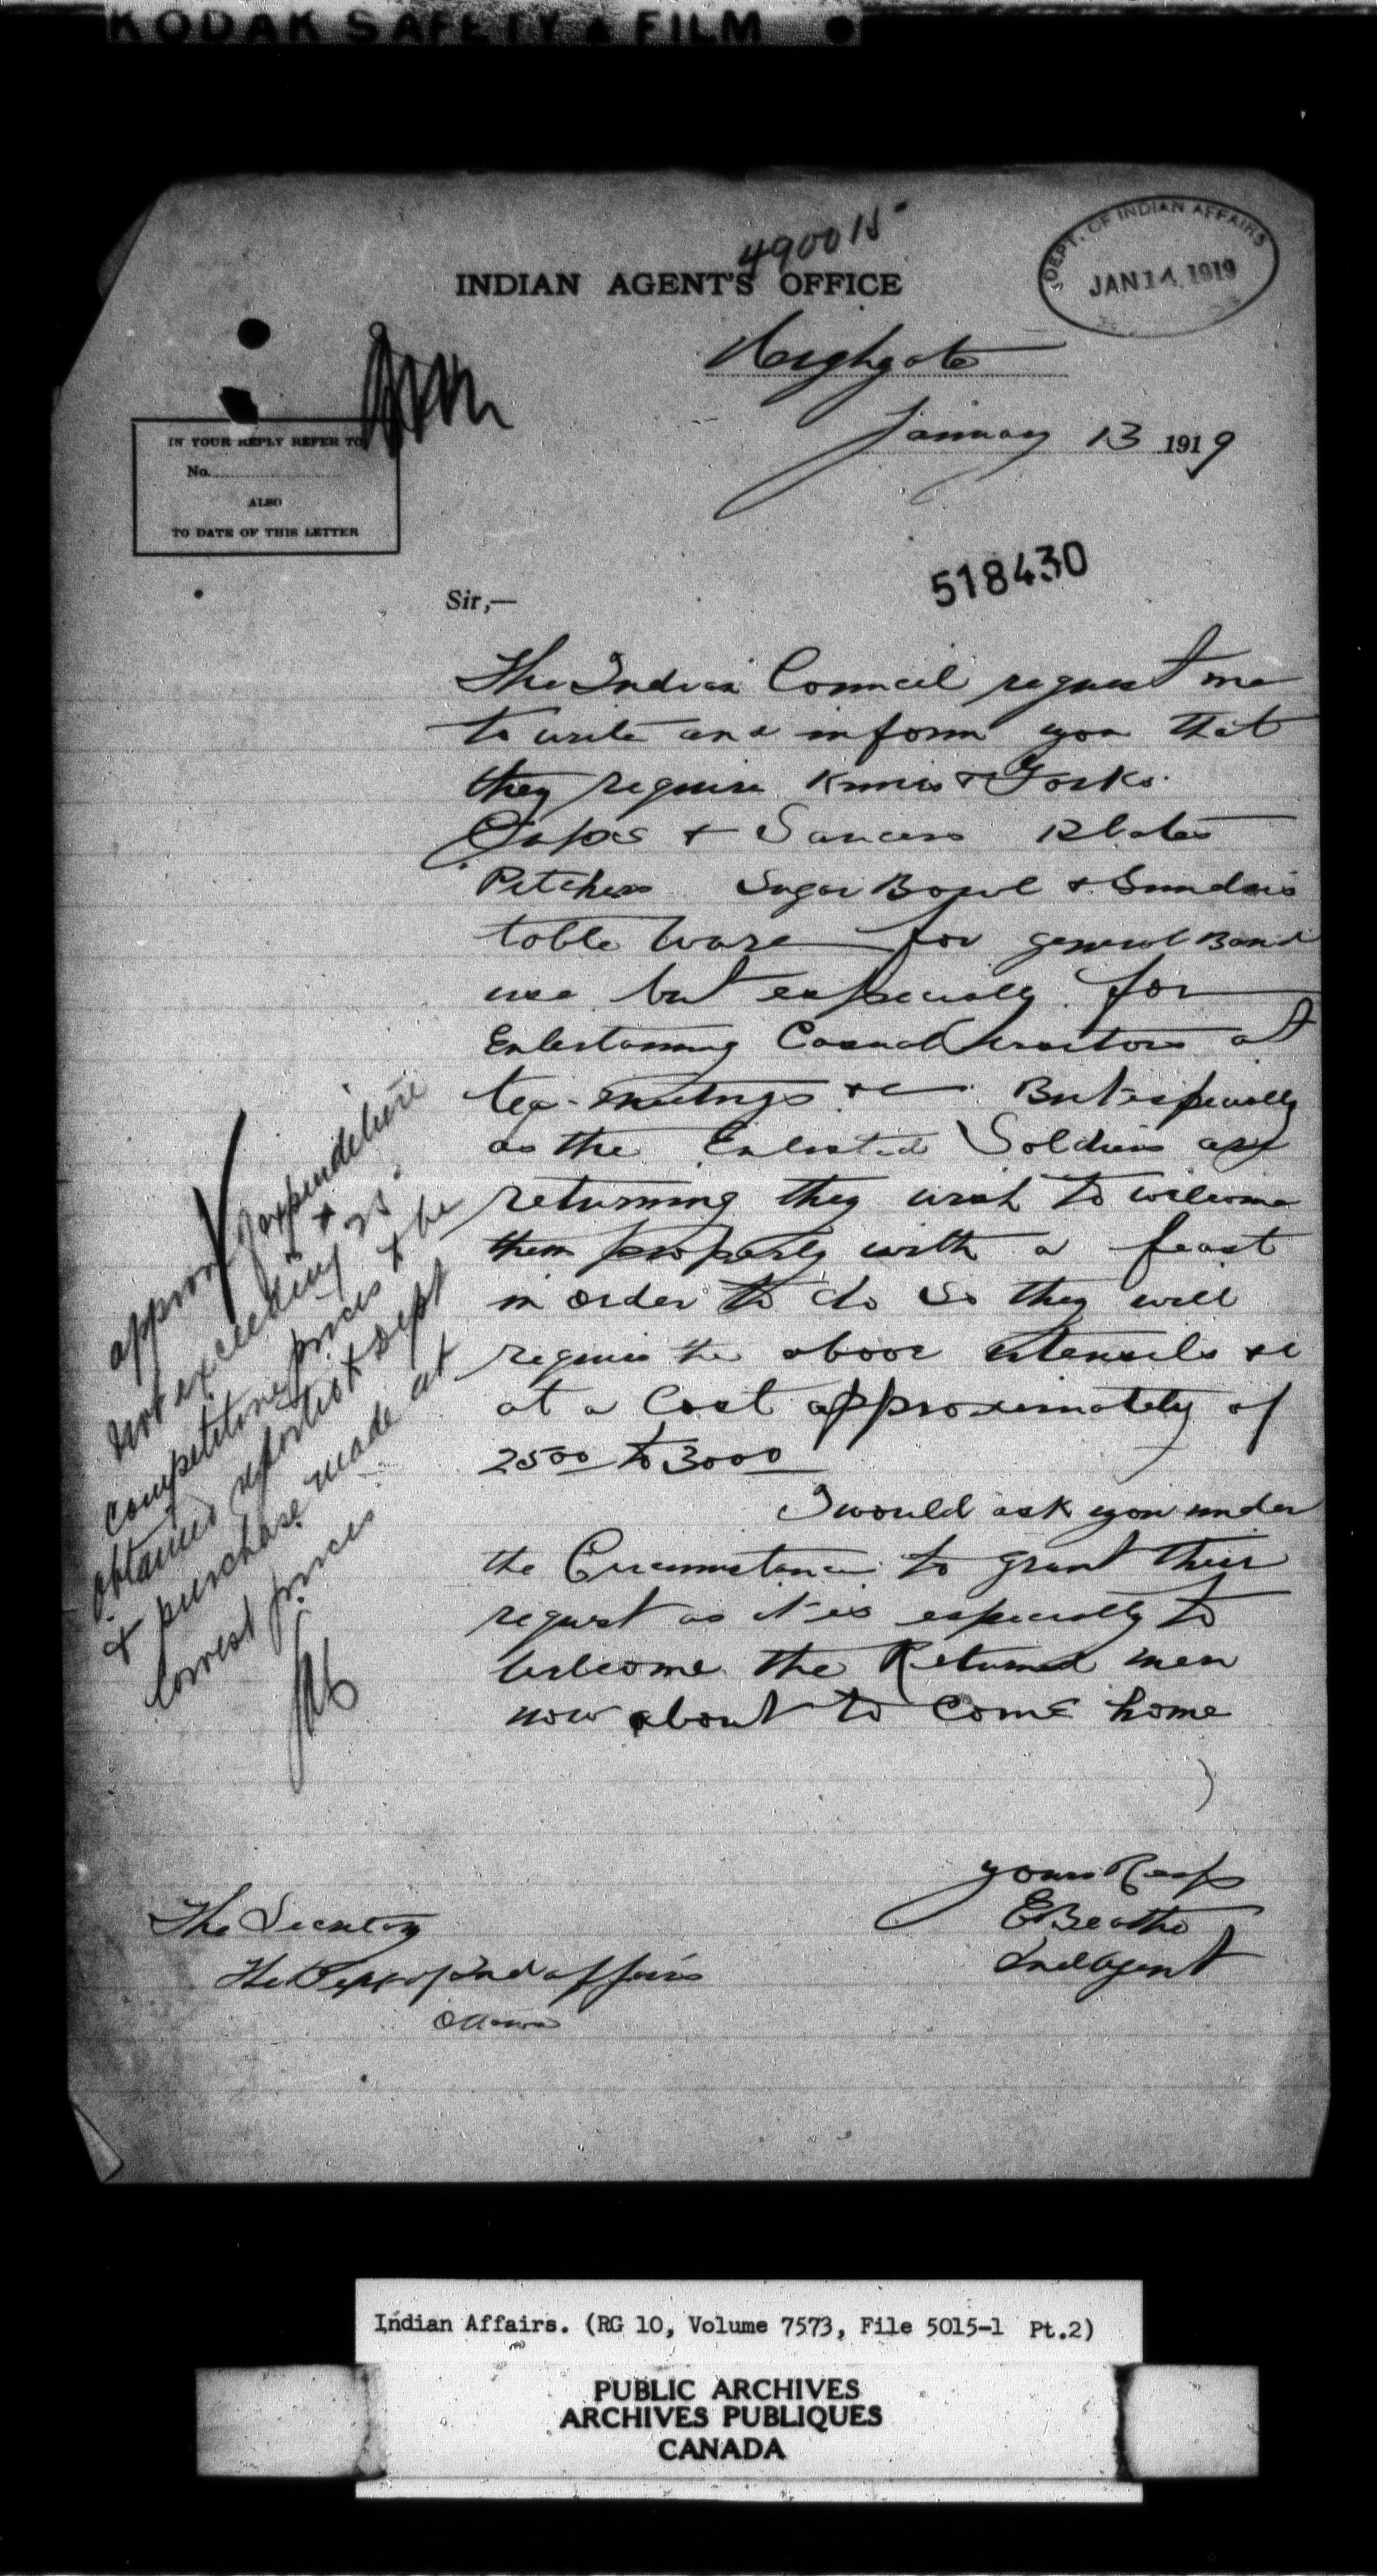 KODAK SAFETY ▲ FILM ●
490015
INDIAN AGENT'S OFFICE
DEPT. OF INDIAN AFFAIRS
JAN 14 1919
Highgate
January 13 1919
IN YOUR REPLY REFER TO
No.
ALSO
TO DATE OF THIS LETTER
518430
Sir,—
The Indian Council request me
to write and inform you that
they require Knives & Forks
Cups & Saucers Plates
Pitchers Sugar Bowl & Sundries
table ware for general Band
use but especially for
Entertaining Casual Visitors at
tea-meetings &c But especially
as the Enlisted Soldiers are
returning they wish to welcome
them properly with a feast
in order to do so they will
require the above utensils &c
at a Cost approximately of
2500 to 3000
I would ask you under
the Circumstance to grant their
request as it is especially to
welcome the Returned men
now about to come home
yours Resp
E Beattie
Ind Agent
The Secretary
The Dept of Ind affairs
Ottawa
approve expenditure
not exceeding 25.
competitive prices to be
obtained reported to Dept
& purchase made at
lowest prices
Indian Affairs. (RG 10, Volume 7573, File 5015-1 Pt.2)
PUBLIC ARCHIVES
ARCHIVES PUBLIQUES
CANADA